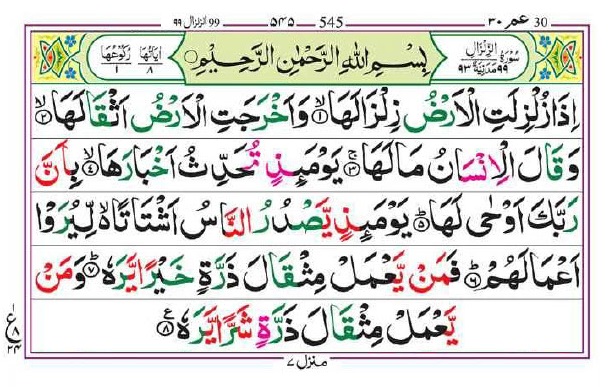 عم ٣٠ 30
545 ۵۴۵
99 الزلزال ٩٩
سُوْرَةُ الزِّلْزَالِ ٩٩ مَدَنِيَّةٌ ٩٣
بِسْمِ اللّٰهِ الرَّحْمٰنِ الرَّحِيْمِ
اٰيَاتُهَا ٨ رُكُوْعُهَا ١
اِذَا زُلْزِلَتِ الْاَرْضُ زِلْزَالَهَا ۙ﴿۱﴾ وَاَخْرَجَتِ الْاَرْضُ اَثْقَالَهَا ۙ﴿۲﴾
وَقَالَ الْاِنْسَانُ مَا لَهَا ۚ﴿۳﴾ يَوْمَىِٕذٍ تُحَدِّثُ اَخْبَارَهَا ۙ﴿۴﴾ بِاَنَّ
رَبَّكَ اَوْحٰى لَهَا ؕ﴿۵﴾ يَوْمَىِٕذٍ يَّصْدُرُ النَّاسُ اَشْتَاتًا ۙ۬ لِّيُرَوْا
اَعْمَالَهُمْ ؕ﴿۶﴾ فَمَنْ يَّعْمَلْ مِثْقَالَ ذَرَّةٍ خَيْرًا يَّرَهٗ ؕ﴿۷﴾ وَمَنْ
يَّعْمَلْ مِثْقَالَ ذَرَّةٍ شَرًّا يَّرَهٗ ﴿۸﴾ ع
١ ع ٨ ٢٤
منزل ٧